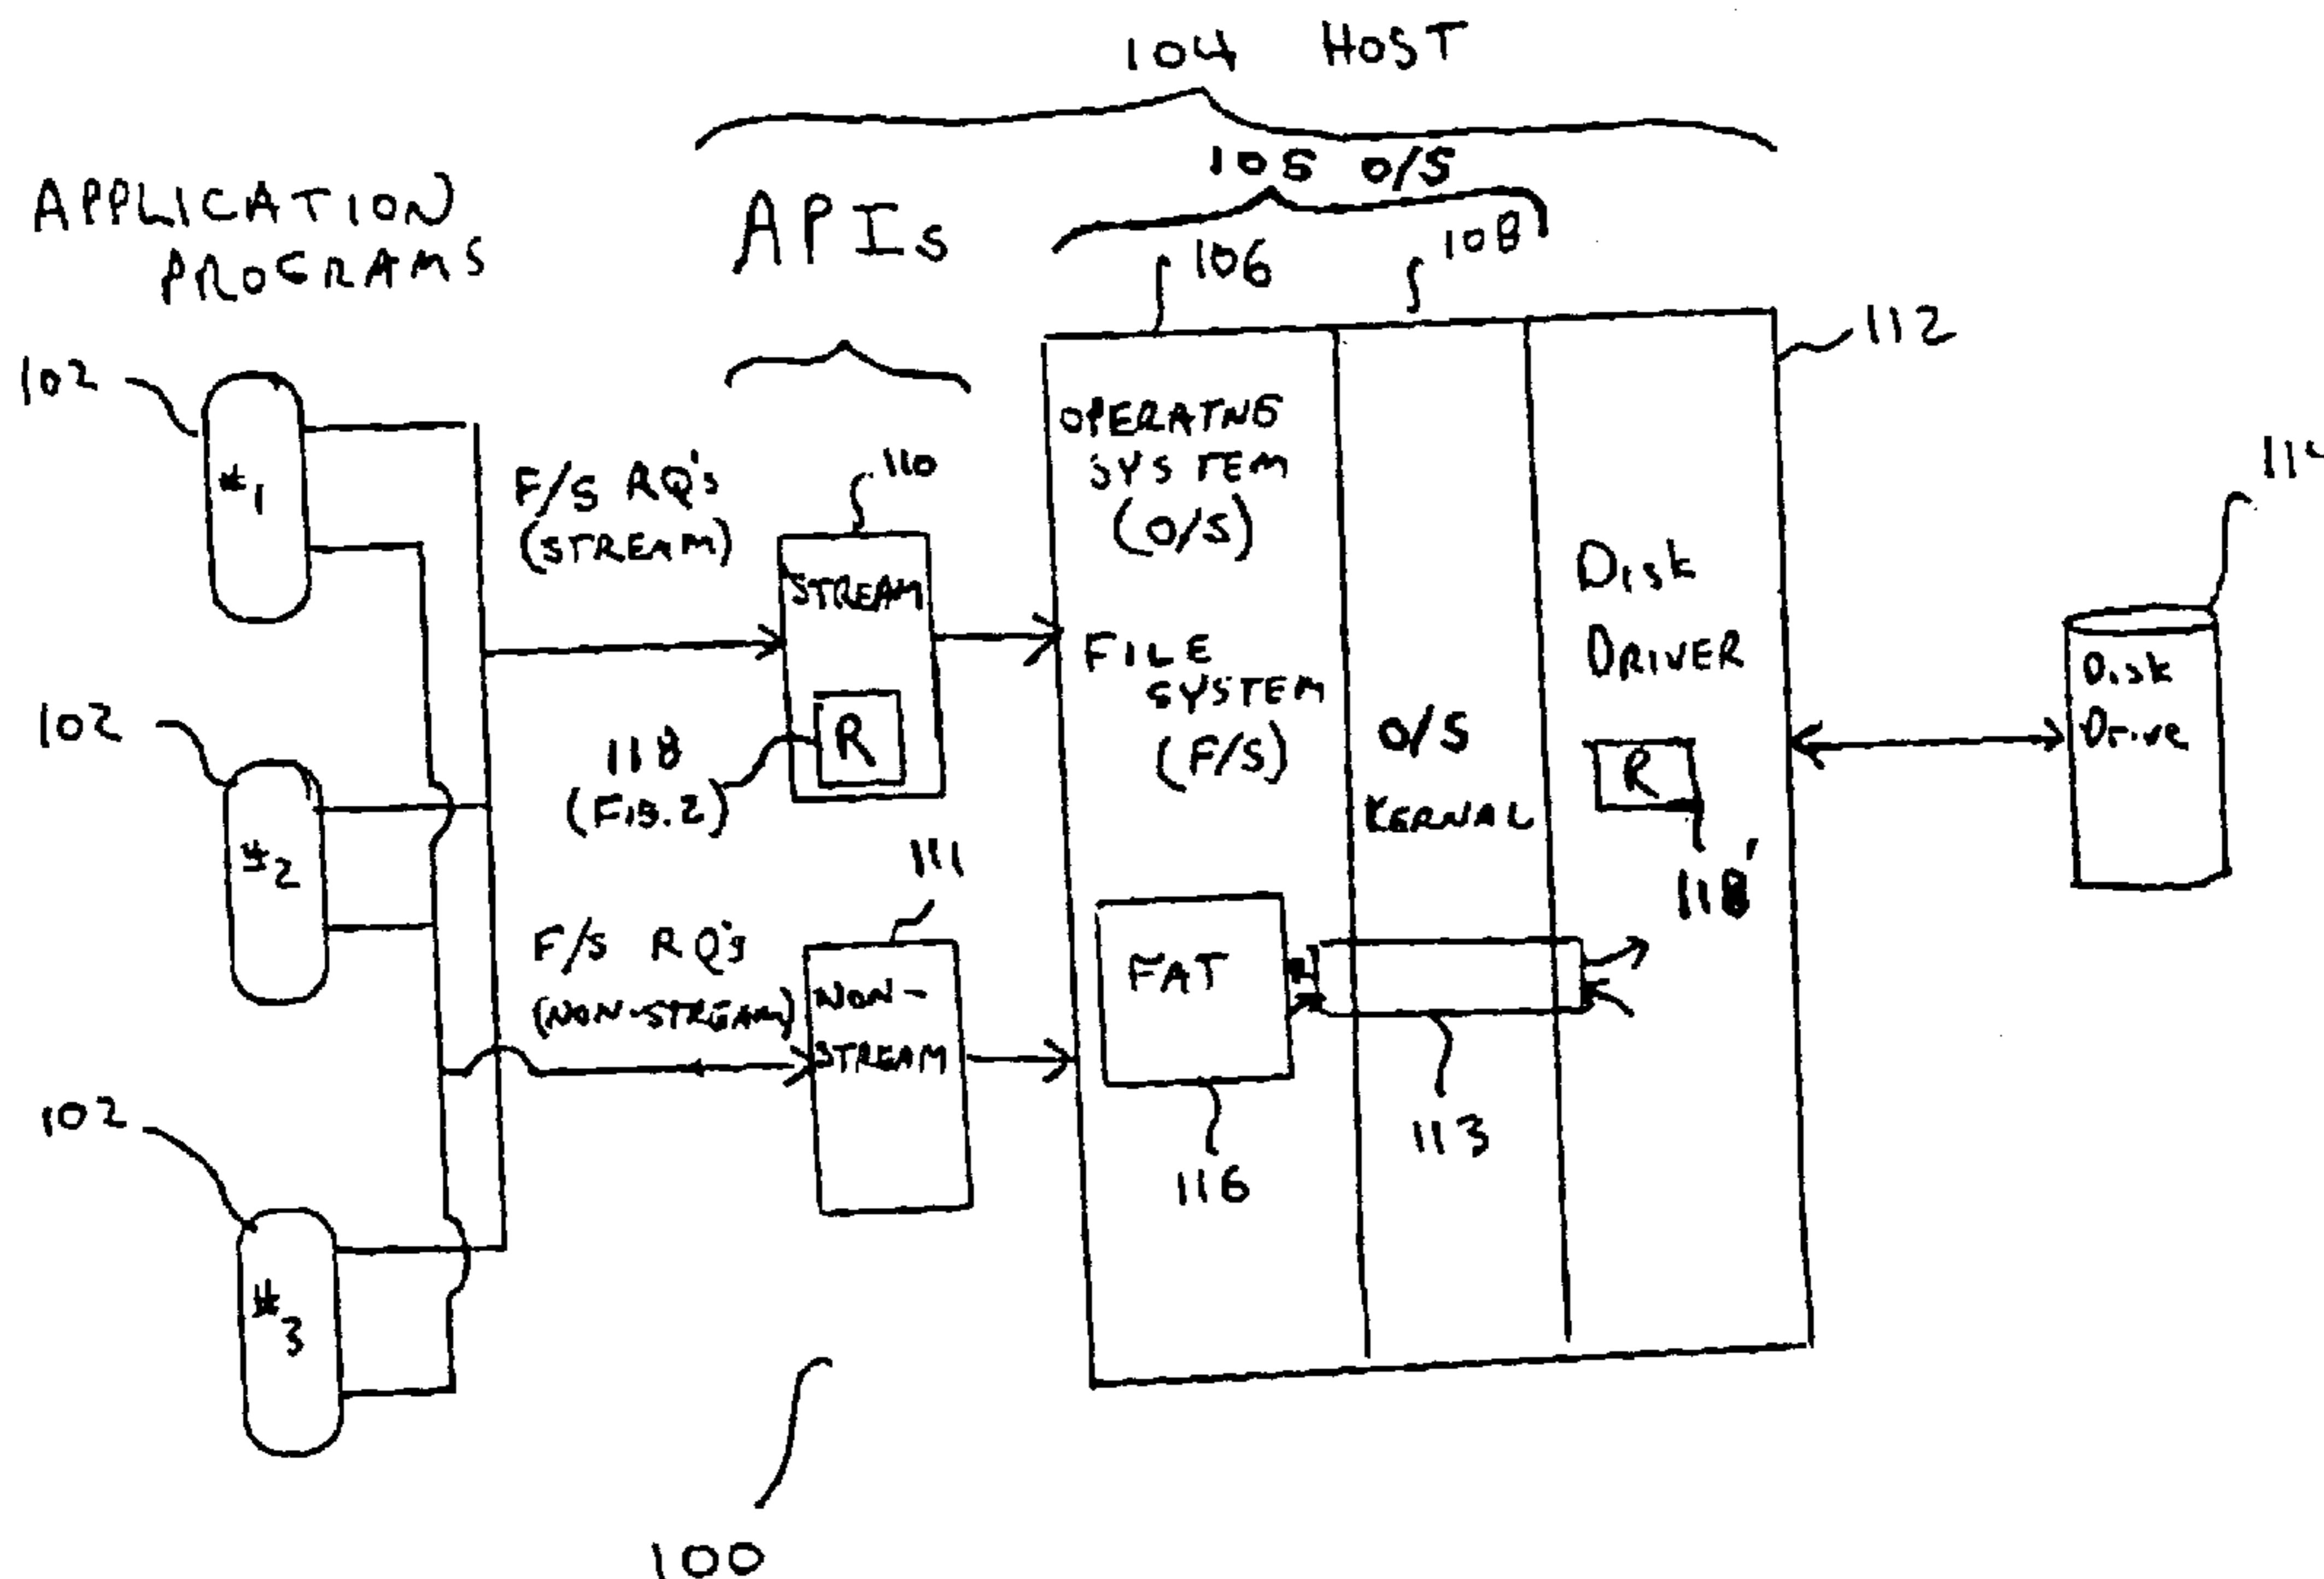 104 HOST
105 O/S
APPLICATION
PROGRAMS
APIs
106
108
112
102
#1
F/S RQ's
(STREAM)
110
STREAM
R
118
(FIG.2)
OPERATNG
SYSTEM
(O/S)
FILE
SYSTEM
(F/S)
O/S
KERNAL
Disk
DRIVER
R
118'
Disk
Drive
102
#2
F/S RQ's
(NON-STREAM)
111
NON-
STREAM
FAT
116
113
102
#3
100